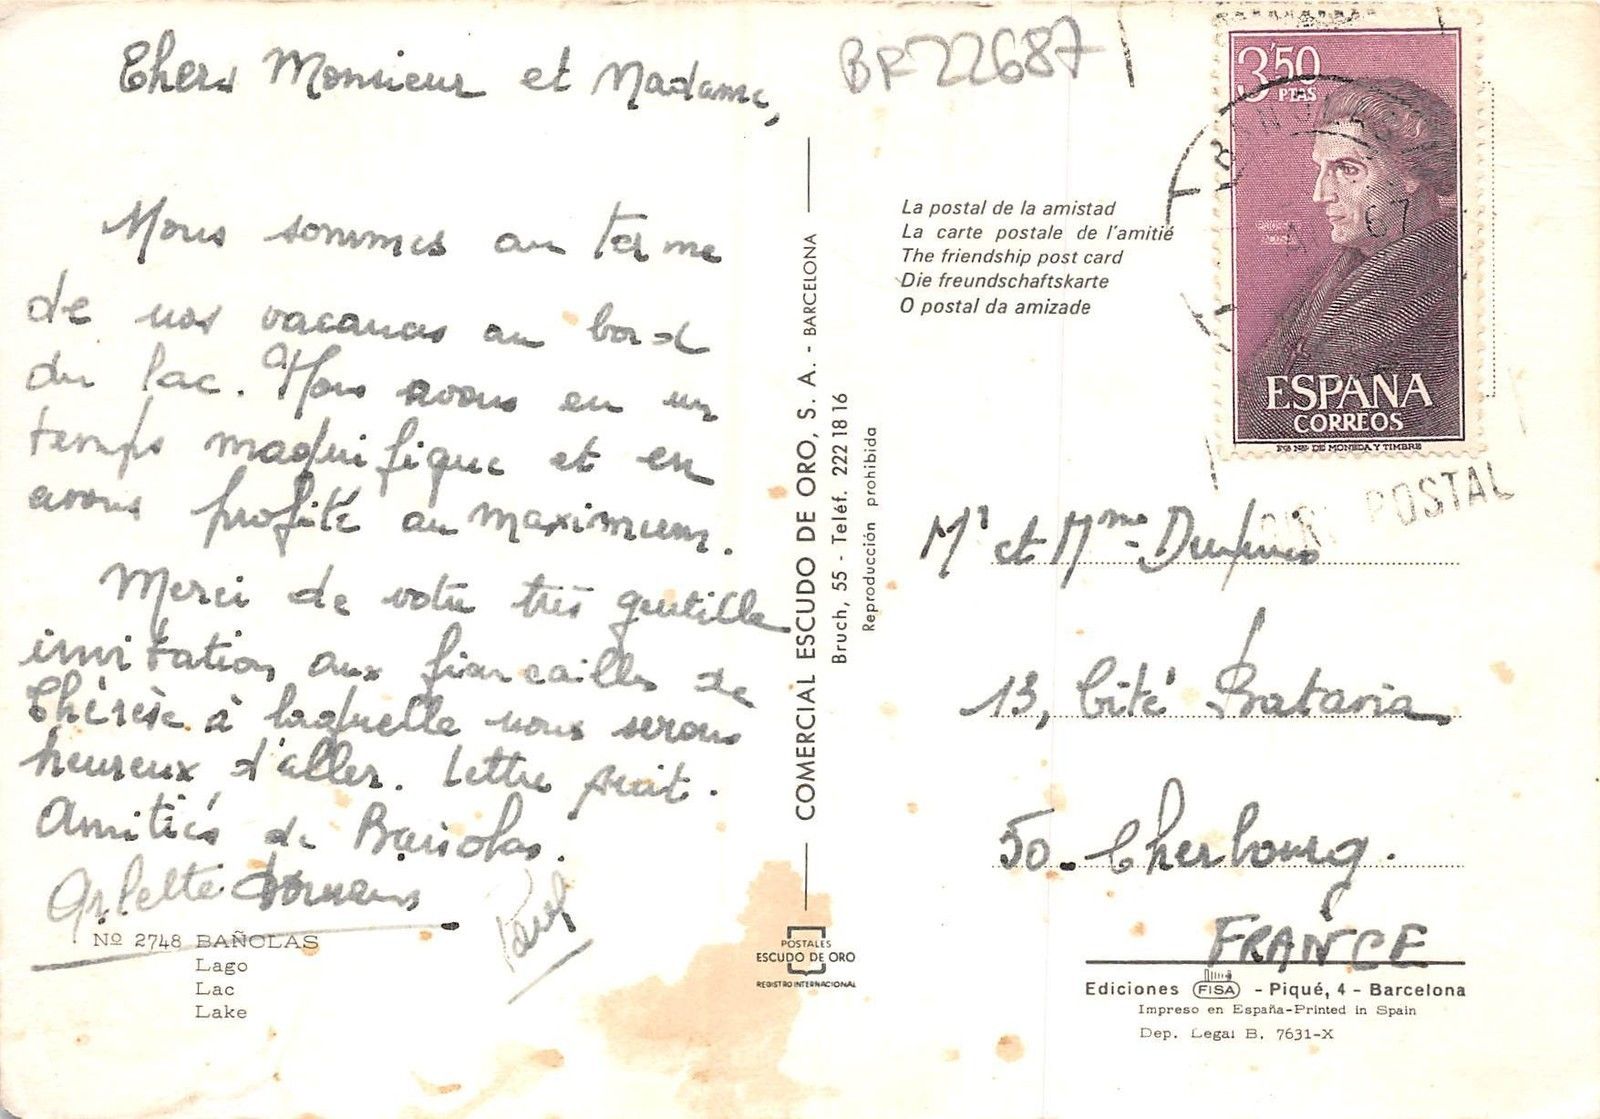 Chers Monsieur et Madame,
Nous sommes au terme
de nos vacances au bord
du lac. Nous avons eu un
temps magnifique et en
avons profité au maximum.
Merci de votre très gentille
invitation aux fiançailles de
Thérèse à laquelle nous serons
heureux d'aller. Lettre suit.
Amitiés de Bañolas.
Arlette
Paul
Nº 2748 BAÑOLAS
Lago
Lac
Lake
COMERCIAL ESCUDO DE ORO, S. A. - BARCELONA
Bruch, 55 - Teléf. 222 18 16
Reproducción prohibida
POSTALES
ESCUDO DE ORO
REGISTRO INTERNACIONAL
BF 22687
La postal de la amistad
La carte postale de l'amitié
The friendship post card
Die freundschaftskarte
O postal da amizade
3'50
PTAS
67
ESPAÑA
CORREOS
POSTAL
Mr et Mme
13, Cité Batavia
50. Cherbourg.
FRANCE
Ediciones FISA - Piqué, 4 - Barcelona
Impreso en España-Printed in Spain
Dep. Legal B. 7631-X